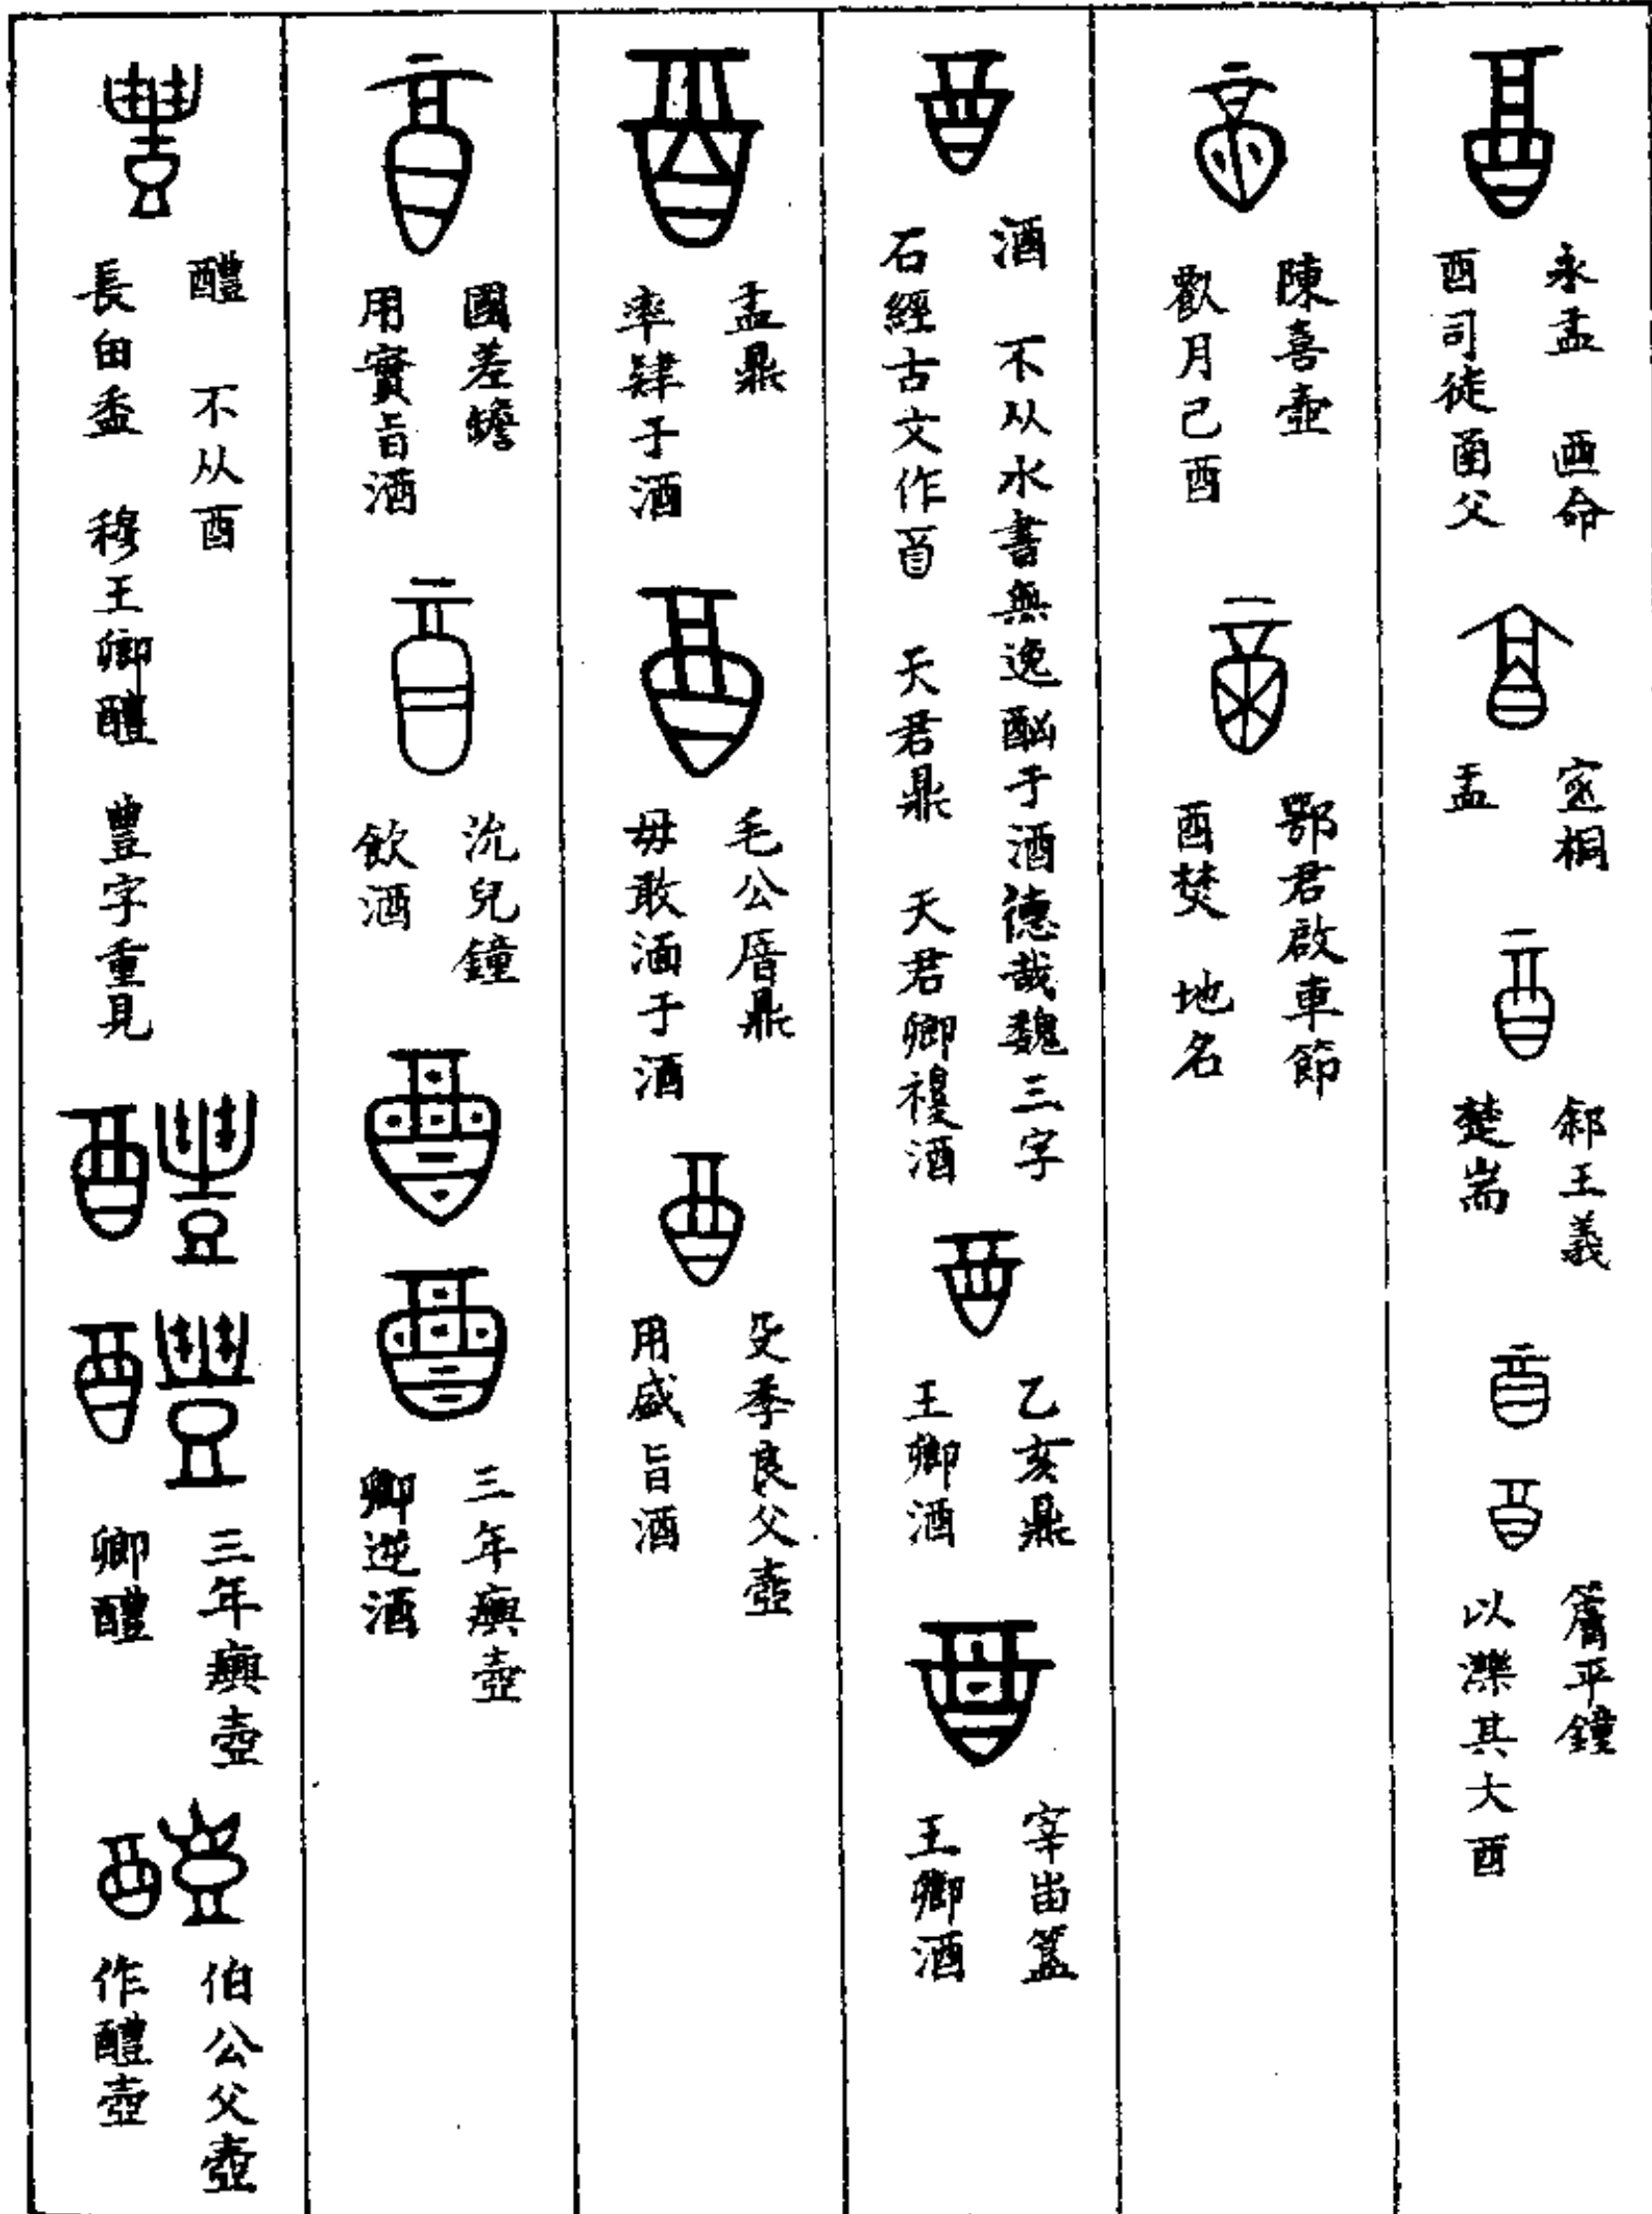 永盂 酉命
酉司徒函父
室桐
盂
郐王義
楚耑
簷平鐘
以濼其大酉
陳喜壺
歔月己酉
鄂君啟車節
酉焚 地名
酒 不从水書無逸酗于酒德哉魏三字
石經古文作酉 天君鼎 天君鄉禝酒
乙亥鼎
王鄉酒
宰甶簋
王鄉酒
盂鼎
率肄于酒
毛公厝鼎
毋敢湎于酒
殳季良父壺
用盛旨酒
國差𦉜
用實旨酒
沇兒鐘
飲酒
三年𤼈壺
鄉逆酒
醴 不从酉
長甶盉 穆王鄉醴 豊字重見
三年𤼈壺
鄉醴
伯公父壺
作醴壺